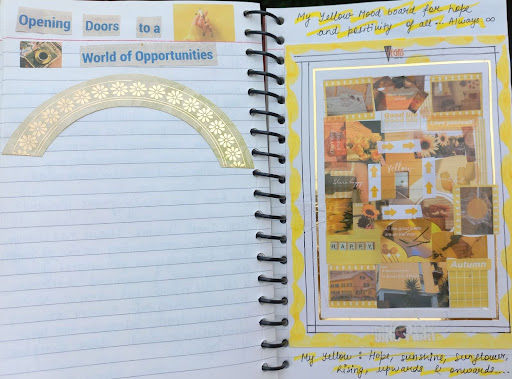 Opening Doors to a
World of Opportunities
My Yellow Mood board for hope
and positivity of all... Always ∞
Good life
Yellow
Share happy
HAPPY
Autumn
My Yellow : Hope, sunshine, Sunflower,
Rising, upwards & onwards....